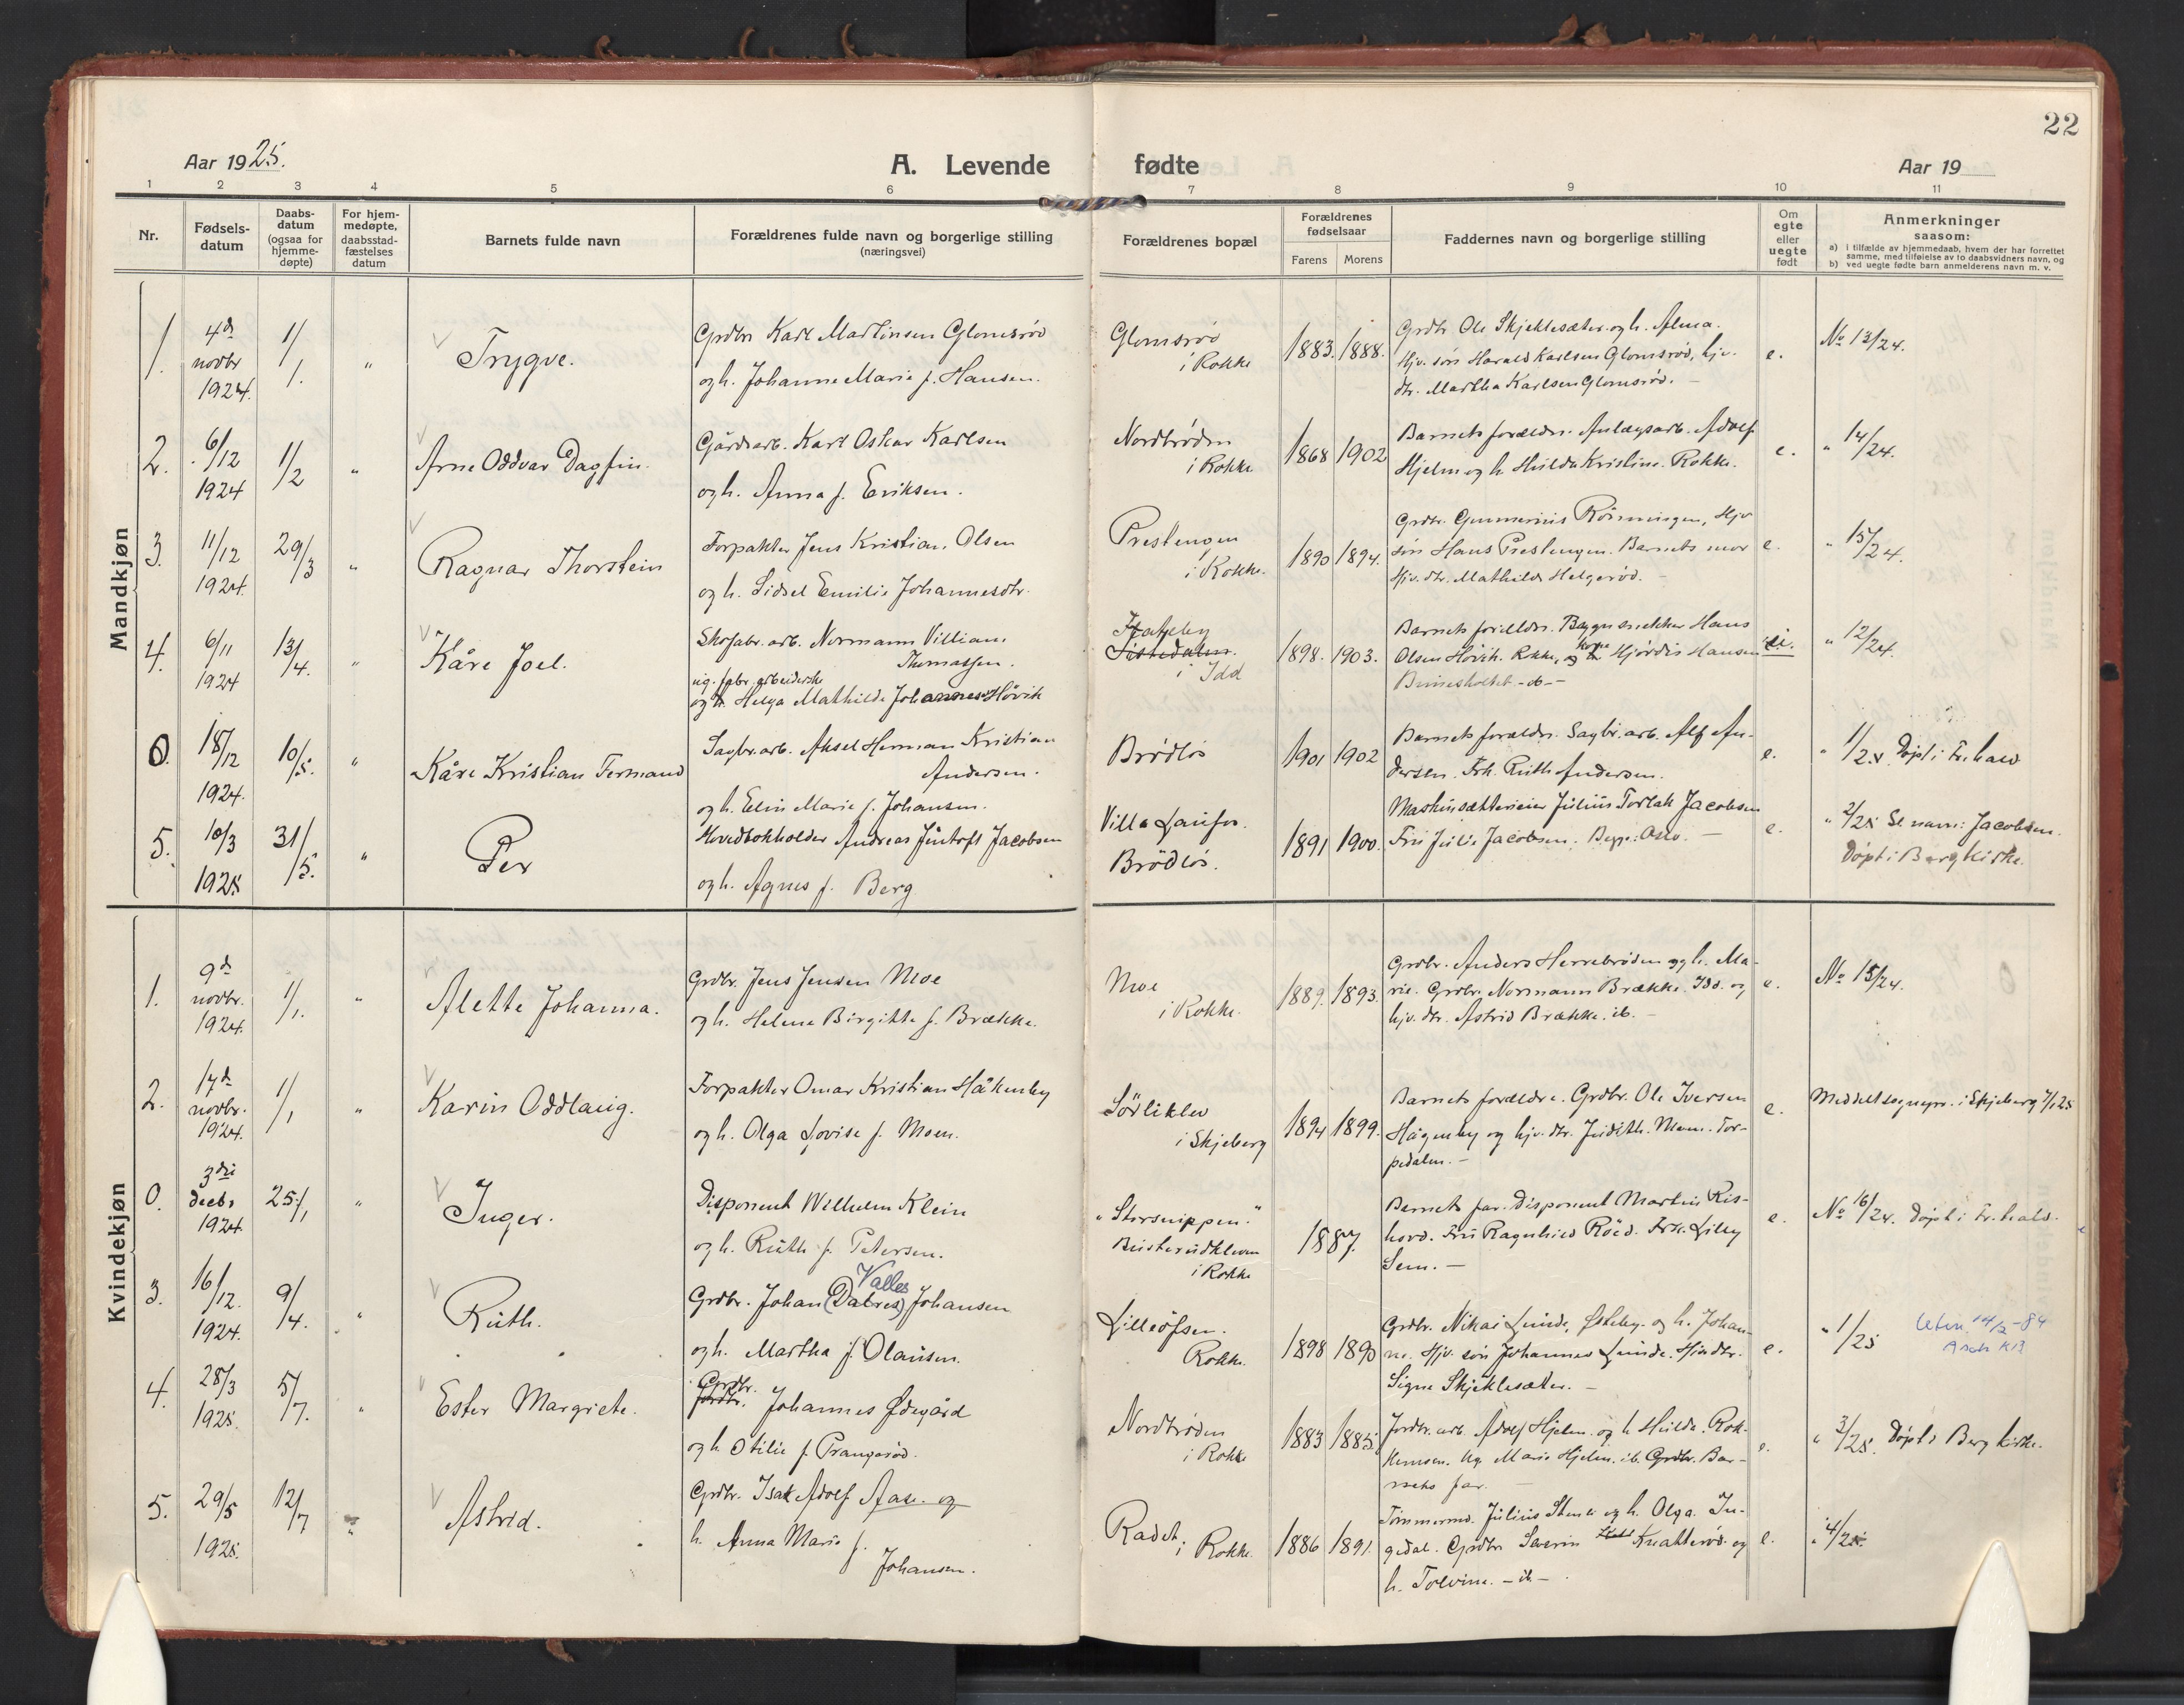 22
Aar 1925.
A. Levende fødte
Aar 19
1 2 3 4 5 6 7 8 9 10 11
Nr.
Fødsels-
datum
Daabs-
datum
(ogsaa for
hjemme-
døpte)
For hjem-
medøpte,
daabsstad-
fæstelses
datum
Barnets fulde navn
Forældrenes fulde navn og borgerlige stilling
(næringsvei)
Forældrenes bopæl
Forældrenes
fødselsaar
Farens Morens
Faddernes navn og borgerlige stilling
Om
egte
eller
uegte
født
Anmerkninger
saasom:
a) i tilfælde av hjemmedaab, hvem der har forrettet
samme, med tilføielse av to daabsvidners navn, og
b) ved uegte fødte barn anmelderens navn m. v.
Mandkjøn
1. 4de novbr 1924. 1/1. " Trygve.
Grdbr Karl Martinsen Glomsrød
og h. Johanne Marie f. Hansen.
Glomsrød
i Rokke
1883. 1888.
Grdbr Ole Skjeklesæter og h. Alma.
Hjv. søn Harald Karlsen Glomsrød, hjv.
dtr. Martha Karlsen Glomsrød. –
e. No 13/24.
2. 6/12 1924 1/2 " Arne Oddvar Dagfin.
Gårdsarb. Karl Oskar Karlsen
og h. Anna f. Eriksen.
Nordbrøden
i Rokke
1868 1902
Barnets forældre. Anlægsarb. Adolf
Hjelm og h. Hulda Kristine. Rokke.
e. " 14/24.
3. 11/12 1924. 29/3 " Ragnar Thorstein
Forpakter Jens Kristian Olsen
og h. Sidsel Emilie Johannesdtr.
Prestengen
i Rokke.
1890 1894.
Grdbr. Gunnerius Rönningen, Hjv
søn Hans Prestengen. Barnets mor
Hjv. dtr. Mathilde Helgerød. –
e. " 15/24.
4. 6/11 1924 13/4. " Kåre Joel.
Skofabr. arb. Normann Villiam
Thomassen.
ug. fabr. arbeiderske
og Helga Mathilde Johannesd Høvik
Isakeby
Tistedalen.
i Idd
1898. 1903.
Barnets forældre. Byggmekker Hans
Olsen Høvik. Rokke, og Hjørdis Hansen
-ib-
" 12/24.
0. 18/12 1924. 10/5. " Kåre Kristian Fermand
Sagbr. arb. Aksel Herman Kristian
Andersen.
og h. Elin Marie f. Johansen.
Brødløs
1901 1902
Barnets forældre. Sagbr. arb. Alf An-
dersen. Frk. Ruth Andersen.
e. " 1/25. Døpt i Fr. hald
5. 10/3 1925 31/5. " Per
Hovedbokholder Andreas Juntoft Jacobsen
og h. Agnes f. Berg
Villa Laufor.
Brødløs.
1891 1900.
Maskinsætteier Julius Torlak Jacobsen
Fru Julie Jacobsen. Begge: Oslo. –
e. " 2/25 Sl. navn: Jacobsen.
Døpt i Berg kirke.
Kvindekjøn
1. 9de novbr. 1924. 1/1. " Alette Johanna.
Grdbr. Jens Jensen Moe
og h. Helene Birgitte f. Brække.
Moe
i Rokke.
1889. 1893.
Grdbr. Anders Herrebrøden og h. Ma-
rie. Grdbr. Normann Brække. Idd. og
hjv. dtr. Astrid Brække. ib. –
e. No 15/24.
2. 17de novbr. 1924. 1/1 " Karin Oddlaug.
Forpakter Omar Kristian Håkenby
og h. Olga Lovise f. Moen.
Sørliklev
i Skjeberg
1894 1899.
Barnets forældre. Grdbr. Ole Iversen
Hågenby og hjv. dtr. Judith Moen. Tor-
pedalen. –
e. Meddelt sognepr. i Skjeberg 7/1 25
0. 3die decbr 1924. 25/1 " Inger.
Disponent Wilhelm Klein
og h. Ruth f. Petersen.
"Storsnippen."
Busterudkleven
i Rokke
1887.
Barnets far. Disponent Martin Ris-
hovd. Fru Ragnhild Röed. Frk. Lilly
Sem. –
e. No 16/24. Døpt i Fr. hald.
3. 16/12. 1924. 9/4. " Ruth.
Valles
Grdbr. Johan (Dalres) Johansen
og h. Martha f. Olausen.
Lilleöfsen.
Rokke.
1898 1890
Grdbr. Nikai Lunde, Østeby. og h. Johan-
ne. Hjv. søn Johannes Lunde. Hjv. dtr.
Signe Skjeklesæter. –
e. " 1/25 Utm. 14/2-84
4. 28/3 1925. 5/7. " Ester Margrete.
Grdbr.
Jordbr. Johannes Ødegård
og h. Otilie f. Prangerød.
Nordbrøden
i Rokke
1883 1885
Jordbr. arb. Adolf Hjelm. og h. Hulda. Rok-
ke. Marie Hjelm. ib. Grdbr. Bar-
nets far. –
e. " 3/25. Døpt i Berg kirke.
5. 29/5 1925. 12/7 " Astrid.
Grdbr. Isak Adolf Aase. og
h. Anna Marie f.
Johansen.
Radet
i Rokke.
1886 1891.
Tömmermd. Julius Stenli og h. Olga. In-
gedal. Grdbr Severin Knatterød og
h. Tolvine. – ib –
e. " 4/25.